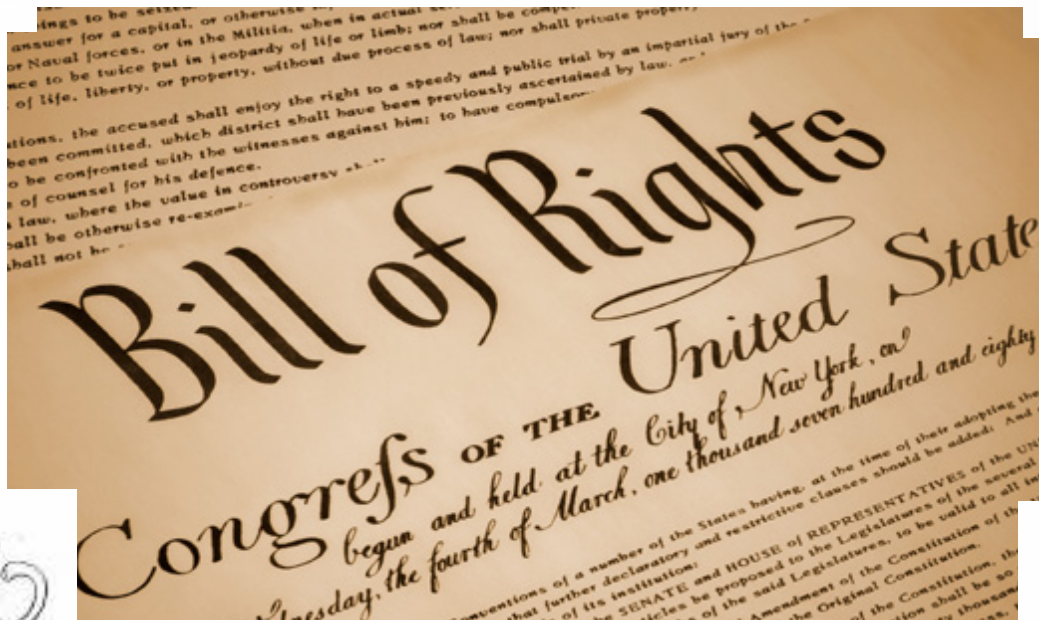 ings to be seized
answer for a capital, or otherwise
or Naval forces, or in the Militia, when in actual
nce to be twice put in jeopardy of life or limb; nor shall be
of life, liberty, or property, without due process of law; nor shall private property
tions, the accused shall enjoy the right to a speedy and public trial by an impartial jury of the
been committed, which district shall have been previously ascertained by law,
o be confronted with the witnesses against him; to have compulsor
of counsel for his defence.
law, where the value in controversy
all be otherwise re-exami
shall not be
Bill of Rights
Congreſs OF THE United State
begun and held at the City of New York, on
dnesday, the fourth of March, one thousand seven hundred and eighty
onventions of a number of the States having, at the time of their adopting the
that further declaratory and restrictive clauses should be added: And
of its institution:
SENATE and HOUSE of REPRESENTATIVES of the UN
icles be proposed to the Legislatures of the several
of the said Legislatures, to be valid to all in
Amendment of the Constitution of the
the Original Constitution.
of the Constitution, the
tion shall be so
thousan